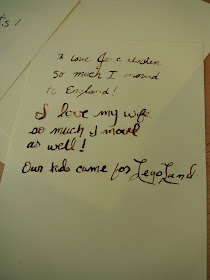 ts!
I love Jane Austen
so much I moved
to England!
I love my wife
so much I moved
as well!
Our kids came for LegoLand.